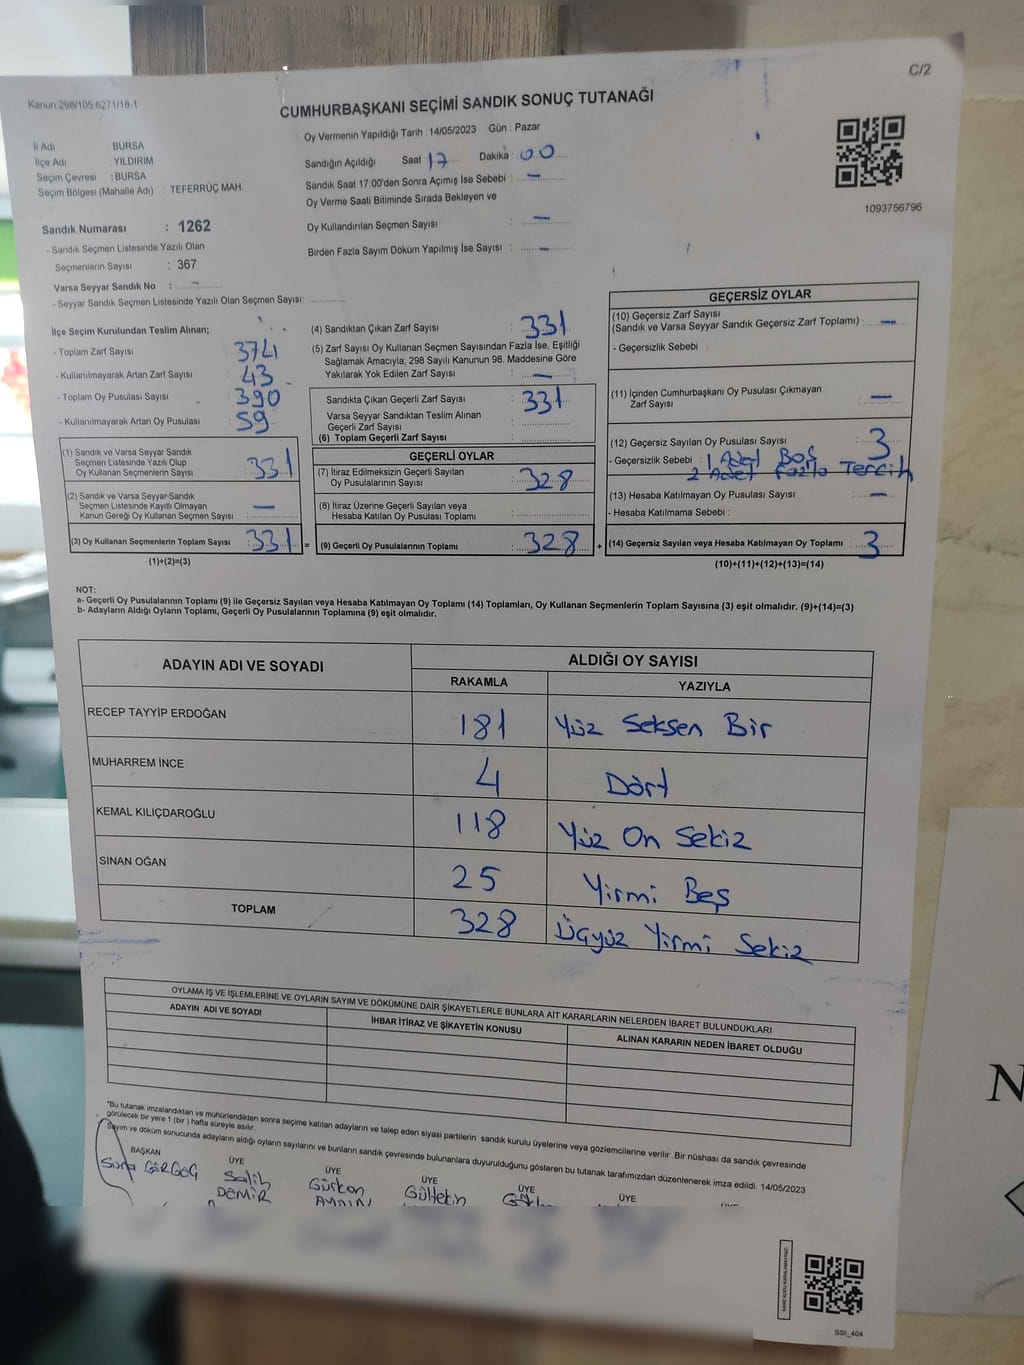 C/2
Kanun:298/105.6271/18-1
CUMHURBAŞKANI SEÇİMİ SANDIK SONUÇ TUTANAĞI
İl Adı : BURSA
İlçe Adı : YILDIRIM
Seçim Çevresi : BURSA
Seçim Bölgesi (Mahalle Adı) : TEFERRÜÇ MAH.
Oy Vermenin Yapıldığı Tarih : 14/05/2023 Gün : Pazar
Sandığın Açıldığı Saat 17 Dakika : 00
Sandık Saat 17:00'den Sonra Açımış İse Sebebi : —
Oy Verme Saati Bitiminde Sırada Bekleyen ve
Oy Kullandırılan Seçmen Sayısı : —
Birden Fazla Sayım Döküm Yapılmış İse Sayısı : —
1093756796
Sandık Numarası : 1262
- Sandık Seçmen Listesinde Yazılı Olan
Seçmenlerin Sayısı : 367
Varsa Seyyar Sandık No : —
- Seyyar Sandık Seçmen Listesinde Yazılı Olan Seçmen Sayısı:
İlçe Seçim Kurulundan Teslim Alınan;
- Toplam Zarf Sayısı : 374
- Kullanılmayarak Artan Zarf Sayısı : 43
- Toplam Oy Pusulası Sayısı : 390
- Kullanılmayarak Artan Oy Pusulası : 59
(1) Sandık ve Varsa Seyyar Sandık
Seçmen Listesinde Yazılı Olup
Oy Kullanan Seçmenlerin Sayısı : 331
(2) Sandık ve Varsa Seyyar Sandık
Seçmen Listesinde Kayıtlı Olmayan
Kanun Gereği Oy Kullanan Seçmen Sayısı : —
(3) Oy Kullanan Seçmenlerin Toplam Sayısı : 331 =
(1)+(2)=(3)
(4) Sandıktan Çıkan Zarf Sayısı : 331
(5) Zarf Sayısı Oy Kullanan Seçmen Sayısından Fazla İse, Eşitliği
Sağlamak Amacıyla; 298 Sayılı Kanunun 98. Maddesine Göre
Yakılarak Yok Edilen Zarf Sayısı : —
Sandıkta Çıkan Geçerli Zarf Sayısı : 331
Varsa Seyyar Sandıktan Teslim Alınan
Geçerli Zarf Sayısı :
(6) Toplam Geçerli Zarf Sayısı :
GEÇERLİ OYLAR
(7) İtiraz Edilmeksizin Geçerli Sayılan
Oy Pusulalarının Sayısı : 328
(8) İtiraz Üzerine Geçerli Sayılan veya
Hesaba Katılan Oy Pusulası Toplamı :
(9) Geçerli Oy Pusulalarının Toplamı : 328 +
GEÇERSİZ OYLAR
(10) Geçersiz Zarf Sayısı
(Sandık ve Varsa Seyyar Sandık Geçersiz Zarf Toplamı) : —
- Geçersizlik Sebebi :
(11) İçinden Cumhurbaşkanı Oy Pusulası Çıkmayan
Zarf Sayısı : —
(12) Geçersiz Sayılan Oy Pusulası Sayısı : 3
- Geçersizlik Sebebi : 1 Adet Boş
2 Adet Fazla Tercih
(13) Hesaba Katılmayan Oy Pusulası Sayısı : —
- Hesaba Katılmama Sebebi :
(14) Geçersiz Sayılan veya Hesaba Katılmayan Oy Toplamı : 3
(10)+(11)+(12)+(13)=(14)
NOT:
a- Geçerli Oy Pusulalarının Toplamı (9) ile Geçersiz Sayılan veya Hesaba Katılmayan Oy Toplamı (14) Toplamları, Oy Kullanan Seçmenlerin Toplam Sayısına (3) eşit olmalıdır. (9)+(14)=(3)
b- Adayların Aldığı Oyların Toplamı, Geçerli Oy Pusulalarının Toplamına (9) eşit olmalıdır.
ADAYIN ADI VE SOYADI
ALDIĞI OY SAYISI
RAKAMLA YAZIYLA
RECEP TAYYİP ERDOĞAN 181 Yüz Seksen Bir
MUHARREM İNCE 4 Dört
KEMAL KILIÇDAROĞLU 118 Yüz On Sekiz
SİNAN OĞAN 25 Yirmi Beş
TOPLAM 328 Üçyüz Yirmi Sekiz
OYLAMA İŞ VE İŞLEMLERİNE VE OYLARIN SAYIM VE DÖKÜMÜNE DAİR ŞİKAYETLERLE BUNLARA AİT KARARLARIN NELERDEN İBARET BULUNDUKLARI
ADAYIN ADI VE SOYADI
İHBAR İTİRAZ VE ŞİKAYETİN KONUSU
ALINAN KARARIN NEDEN İBARET OLDUĞU
*Bu tutanak imzalandıktan ve mühürlendikten sonra seçime katılan adayların ve talep eden siyasi partilerin sandık kurulu üyelerine veya gözlemcilerine verilir. Bir nüshası da sandık çevresinde
görülecek bir yere 1 (bir) hafta süreyle asılır.
Sayım ve döküm sonucunda adayların aldığı oyların sayılarını ve bunların sandık çevresinde bulunanlara duyurulduğunu gösteren bu tutanak tarafımızdan düzenlenerek imza edildi. 14/05/2023
BAŞKAN ÜYE ÜYE ÜYE ÜYE ÜYE
Salih Gürkan Gültekin
DEMİR
SSI_404
N